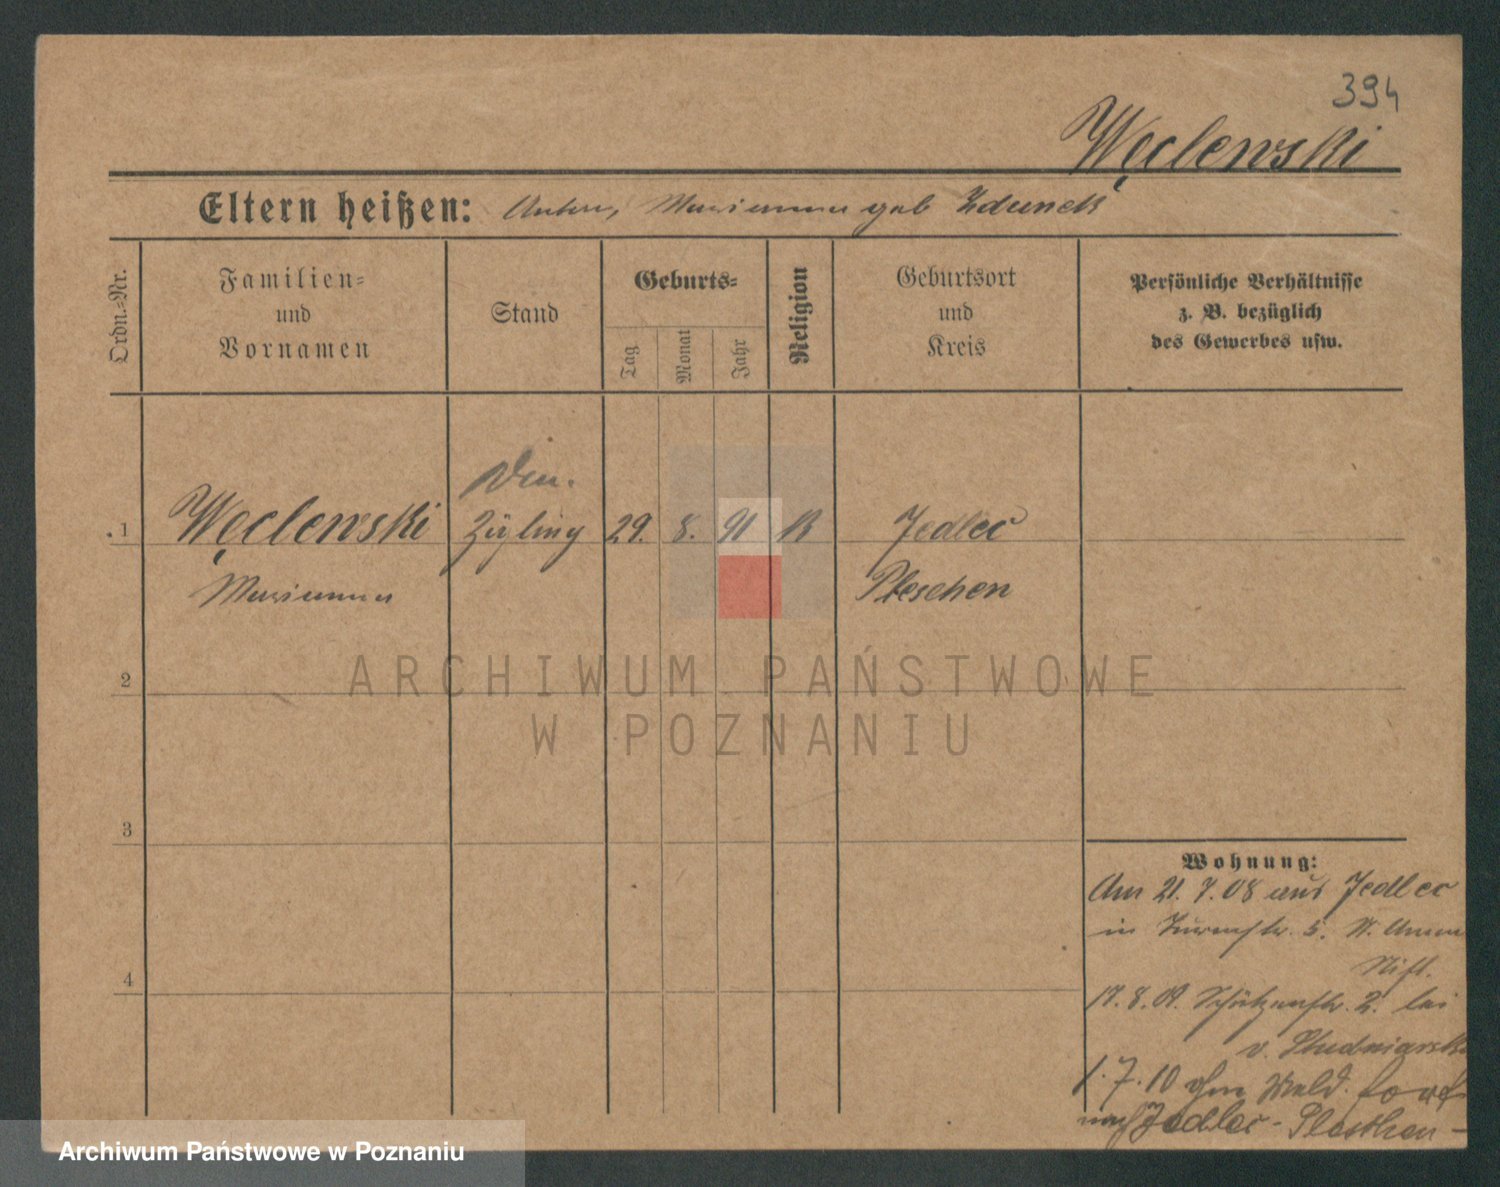 394
Węclewski
Eltern heißen: Anton, Marianna geb Zdunek
Ordn.-Nr.
Familien-
und
Vornamen
Stand
Geburts-
Tag
Monat
Jahr
Religion
Geburtsort
und
Kreis
Persönliche Verhältnisse
z. B. bezüglich
des Gewerbes usw.
1
Węclewski
Marianna
Zögling
29. 8. 91 K
Jedlec
Pleschen
2
3
4
Wohnung:
Am 21. 7. 08 aus Jedlec
in Turmstr. 5. St. Annen
Stift.
17. 8. 09. Schützenstr. 2. bei
v. Studniarski
1. 7. 10 ohne Meld. fort
nach Jedlec - Pleschen -
ARCHIWUM PAŃSTWOWE
W POZNANIU
Archiwum Państwowe w Poznaniu